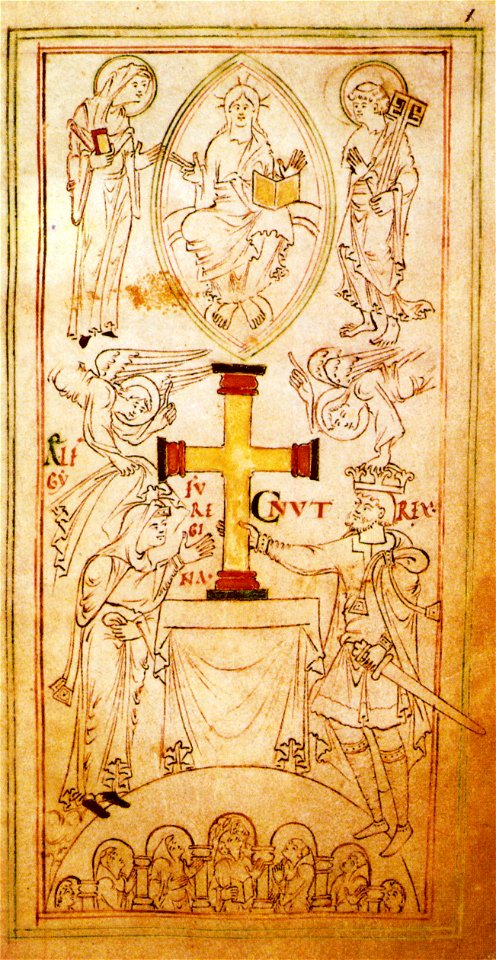 1
ÆLF
GẎ
FV
RE
GI
NA·
CNVT REX·